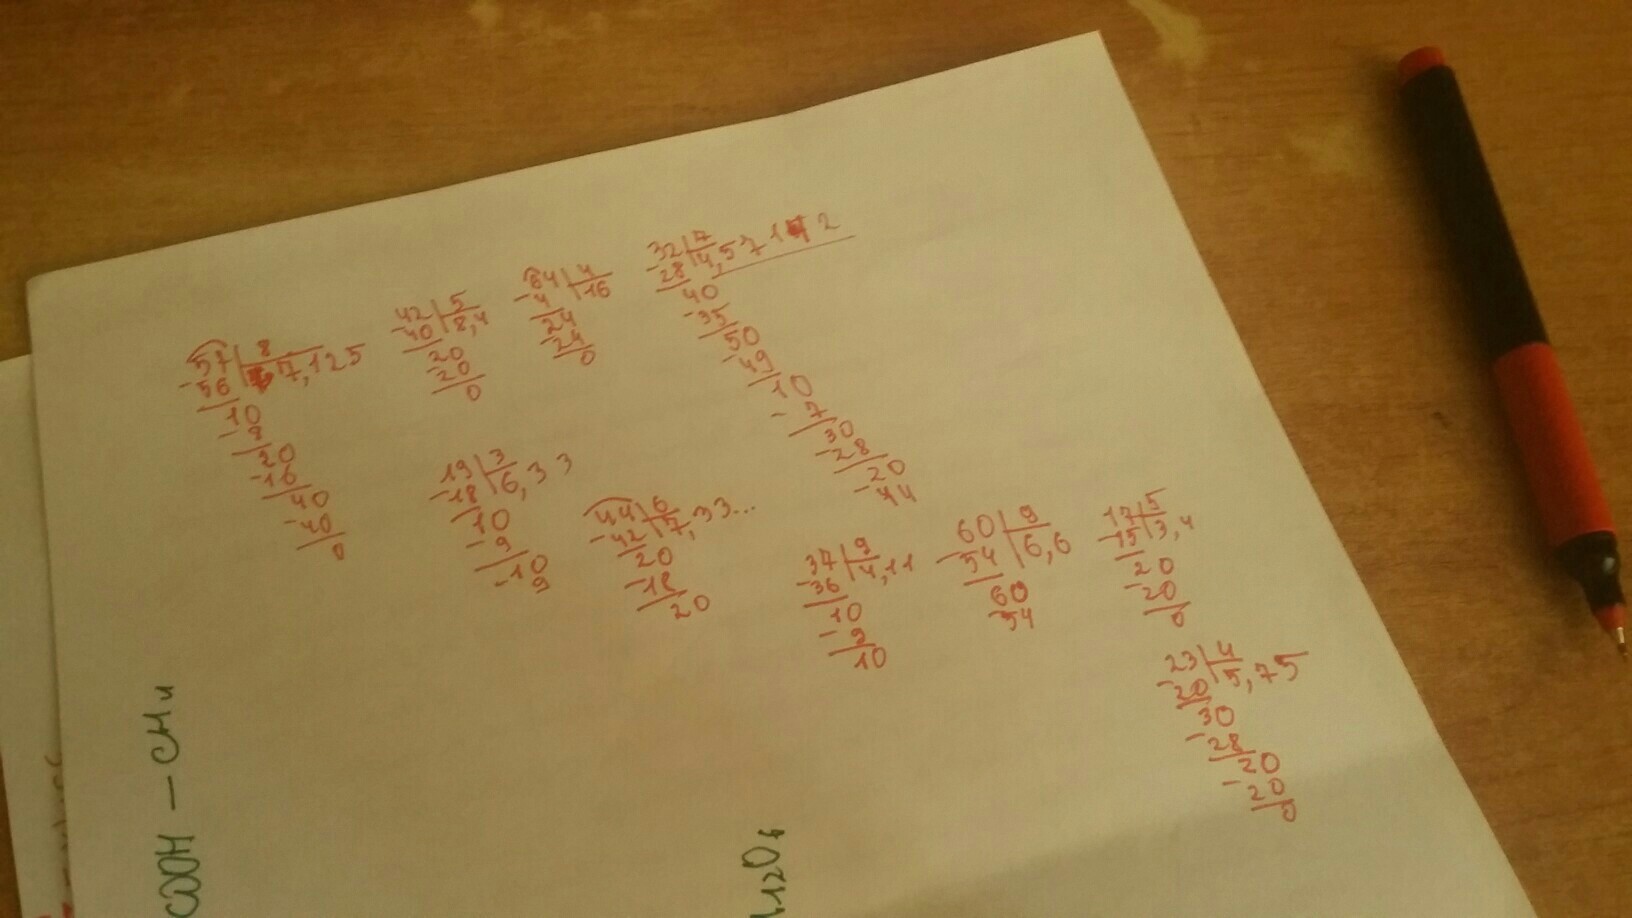 57 | 8
-56 | 7,125
10
-8
20
-16
40
-40
0
42 | 5
-40 | 8,4
20
-20
0
64 | 4
-4 | 16
24
-24
0
32 | 7
-28 | 4,57142
40
-35
50
-49
10
-7
30
-28
20
-14
19 | 3
-18 | 6,33
10
-9
10
-9
44 | 6
-42 | 7,33...
20
-18
20
37 | 9
-36 | 4,11
10
-9
10
60 | 9
-54 | 6,6
60
54
17 | 5
-15 | 3,4
20
-20
0
23 | 4
-20 | 5,75
30
-28
20
-20
0